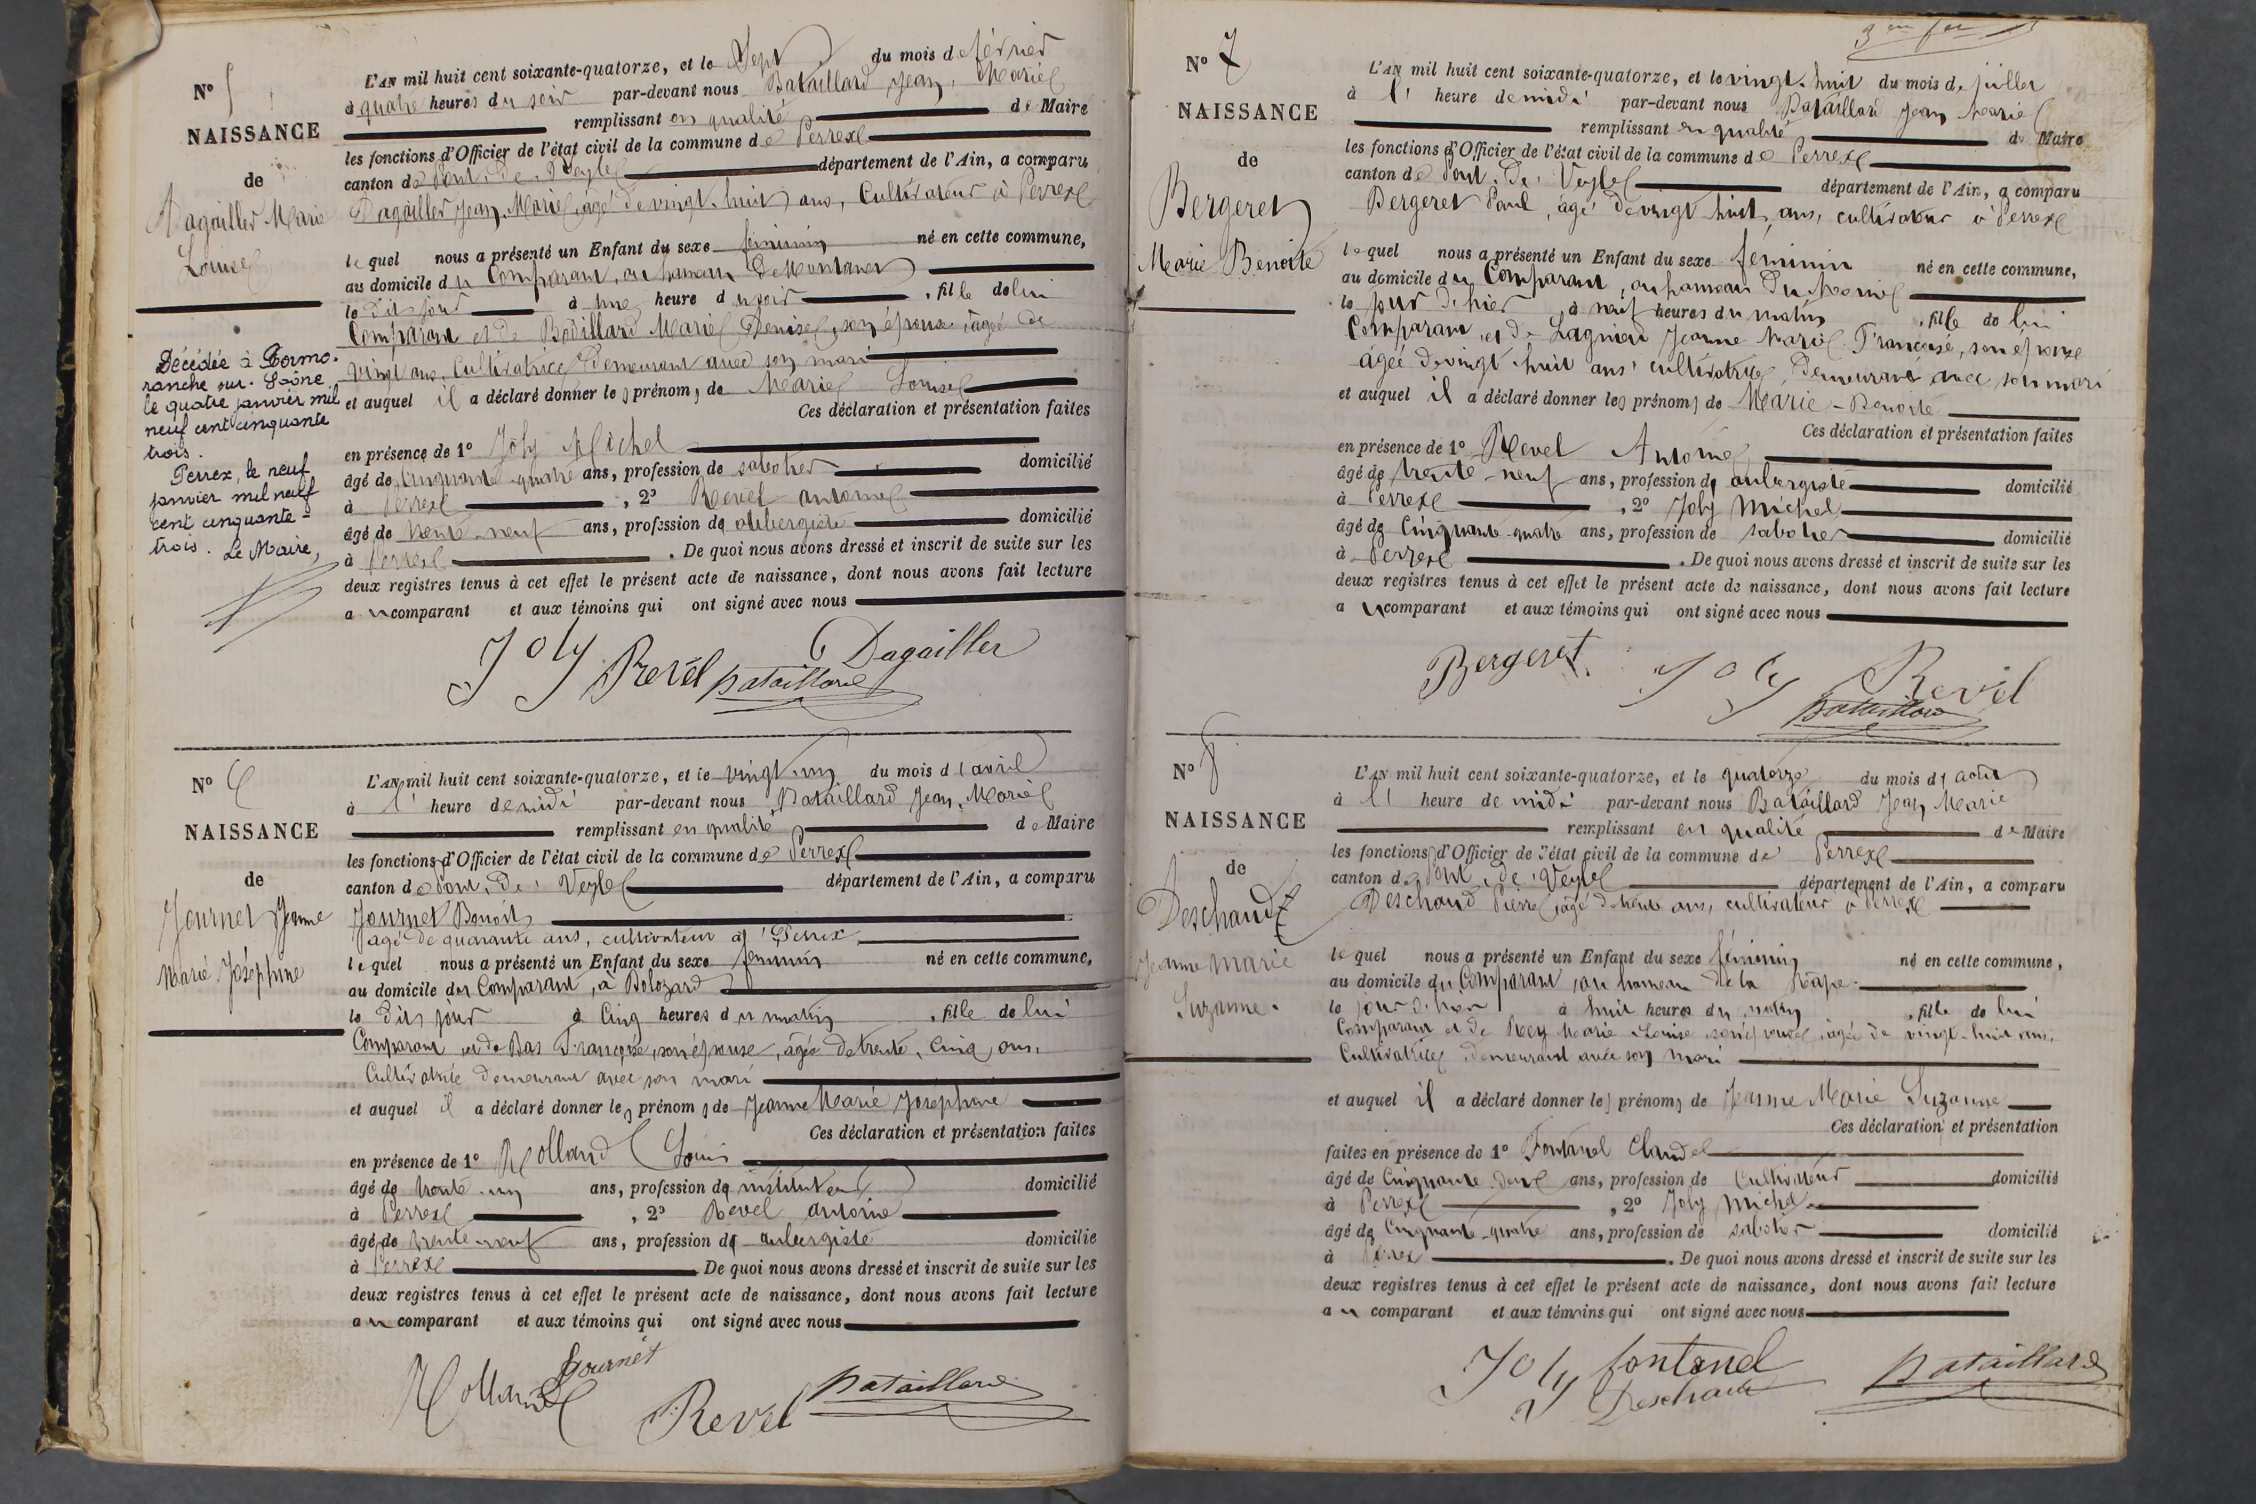 N° 5
NAISSANCE
de
Dagailler Marie
Louise
Décédée à Cormo-
ranche sur-Saône
le quatre janvier mil
neuf cent cinquante
trois.
Perrex, le neuf
janvier mil neuf
cent cinquante-
trois. Le Maire,
L'AN mil huit cent soixante-quatorze, et le Sept du mois de février
à quatre heures du soir par-devant nous Bataillard Jean, Marie
remplissant en qualité de Maire
les fonctions d'Officier de l'état civil de la commune de Perrex
canton de Pont-de-Veyle département de l'Ain, a comparu
Dagailler Jean, Marie, âgé de vingt-huit ans, Cultivateur à Perrex
lequel nous a présenté un Enfant du sexe féminin né en cette commune,
au domicile du Comparant, au hameau de Montanet
le dit jour à une heure du soir, fille de lui
Comparant et de Bodillard Marie Denise, son épouse, âgée de
vingt ans, Cultivatrice demeurant avec son mari
et auquel il a déclaré donner les prénoms de Marie Louise
Ces déclaration et présentation faites
en présence de 1° Joly Michel
âgé de Cinquante-quatre ans, profession de sabotier domicilié
à Perrex, 2° Revel antoine
âgé de trente-neuf ans, profession de aubergiste domicilié
à Perrex. De quoi nous avons dressé et inscrit de suite sur les
deux registres tenus à cet effet le présent acte de naissance, dont nous avons fait lecture
au comparant et aux témoins qui ont signé avec nous
Joly Revel Bataillard Dagailler
N° 6
NAISSANCE
de
Journet Jeanne
Marie Joséphine
L'AN mil huit cent soixante-quatorze, et le vingt-un du mois d'avril
à l' heure de midi par-devant nous Bataillard Jean, Marie
remplissant en qualité de Maire
les fonctions d'Officier de l'état civil de la commune de Perrex
canton de Pont-de-Veyle département de l'Ain, a comparu
Journet Benoit
âgé de quarante ans, cultivateur à Perrex
lequel nous a présenté un Enfant du sexe féminin né en cette commune,
au domicile du Comparant, à Bolozard
le dit jour à Cinq heures du matin, fille de lui
Comparant et de Bas Françoise, son épouse, âgée de trente-cinq ans,
Cultivatrice demeurant avec son mari
et auquel il a déclaré donner les prénoms de Jeanne Marie Joséphine
Ces déclaration et présentation faites
en présence de 1° Rolland Louis
âgé de trente-un ans, profession de instituteur domicilié
à Perrex, 2° Revel antoine
âgé de trente-neuf ans, profession de aubergiste domicilié
à Perrex. De quoi nous avons dressé et inscrit de suite sur les
deux registres tenus à cet effet le présent acte de naissance, dont nous avons fait lecture
au comparant et aux témoins qui ont signé avec nous
Rolland Journet Revel Bataillard
N° 7
NAISSANCE
de
Bergeret
Marie Benoite
L'AN mil huit cent soixante-quatorze, et le vingt-huit du mois de juillet
à l' heure de midi par-devant nous Bataillard Jean Marie
remplissant en qualité de Maire
les fonctions d'Officier de l'état civil de la commune de Perrex
canton de Pont-de-Veyle département de l'Ain, a comparu
Bergeret Paul, âgé de vingt huit ans, cultivateur à Perrex
lequel nous a présenté un Enfant du sexe féminin né en cette commune,
au domicile du Comparant, au hameau du
le jour d'hier à neuf heures du matin, fille de lui
Comparant et de Lagnieu Jeanne Marie Françoise, son épouse
âgée de vingt huit ans cultivatrice, demeurant avec son mari
et auquel il a déclaré donner les prénoms de Marie-Benoite
Ces déclaration et présentation faites
en présence de 1° Revel Antoine
âgé de trente-neuf ans, profession de aubergiste domicilié
à Perrex, 2° Joly Michel
âgé de Cinquante-quatre ans, profession de sabotier domicilié
à Perrex. De quoi nous avons dressé et inscrit de suite sur les
deux registres tenus à cet effet le présent acte de naissance, dont nous avons fait lecture
au comparant et aux témoins qui ont signé avec nous
Bergeret Joly Revel
Bataillard
N° 8
NAISSANCE
de
Deschaud
Jeanne Marie
Suzanne.
L'AN mil huit cent soixante-quatorze, et le quatorze du mois d'août
à l' heure de midi par-devant nous Bataillard Jean Marie
remplissant en qualité de Maire
les fonctions d'Officier de l'état civil de la commune de Perrex
canton de Pont-de-Veyle département de l'Ain, a comparu
Deschaud Pierre, âgé de trente ans, cultivateur à Perrex
lequel nous a présenté un Enfant du sexe féminin né en cette commune,
au domicile du Comparant, au hameau de la Râpe
le jour d'hier à huit heures du matin, fille de lui
Comparant et de Rey Marie Louise son épouse, âgée de vingt-huit ans,
Cultivatrice, demeurant avec son mari
et auquel il a déclaré donner les prénoms de Jeanne Marie Suzanne
Ces déclaration et présentation
faites en présence de 1° Fontanel Claude
âgé de Cinquante-deux ans, profession de Cultivateur domicilié
à Perrex, 2° Joly Michel
âgé de Cinquante-quatre ans, profession de sabotier domicilié
à Perrex. De quoi nous avons dressé et inscrit de suite sur les
deux registres tenus à cet effet le présent acte de naissance, dont nous avons fait lecture
au comparant et aux témoins qui ont signé avec nous
Joly fontanel Bataillard
Deschaud